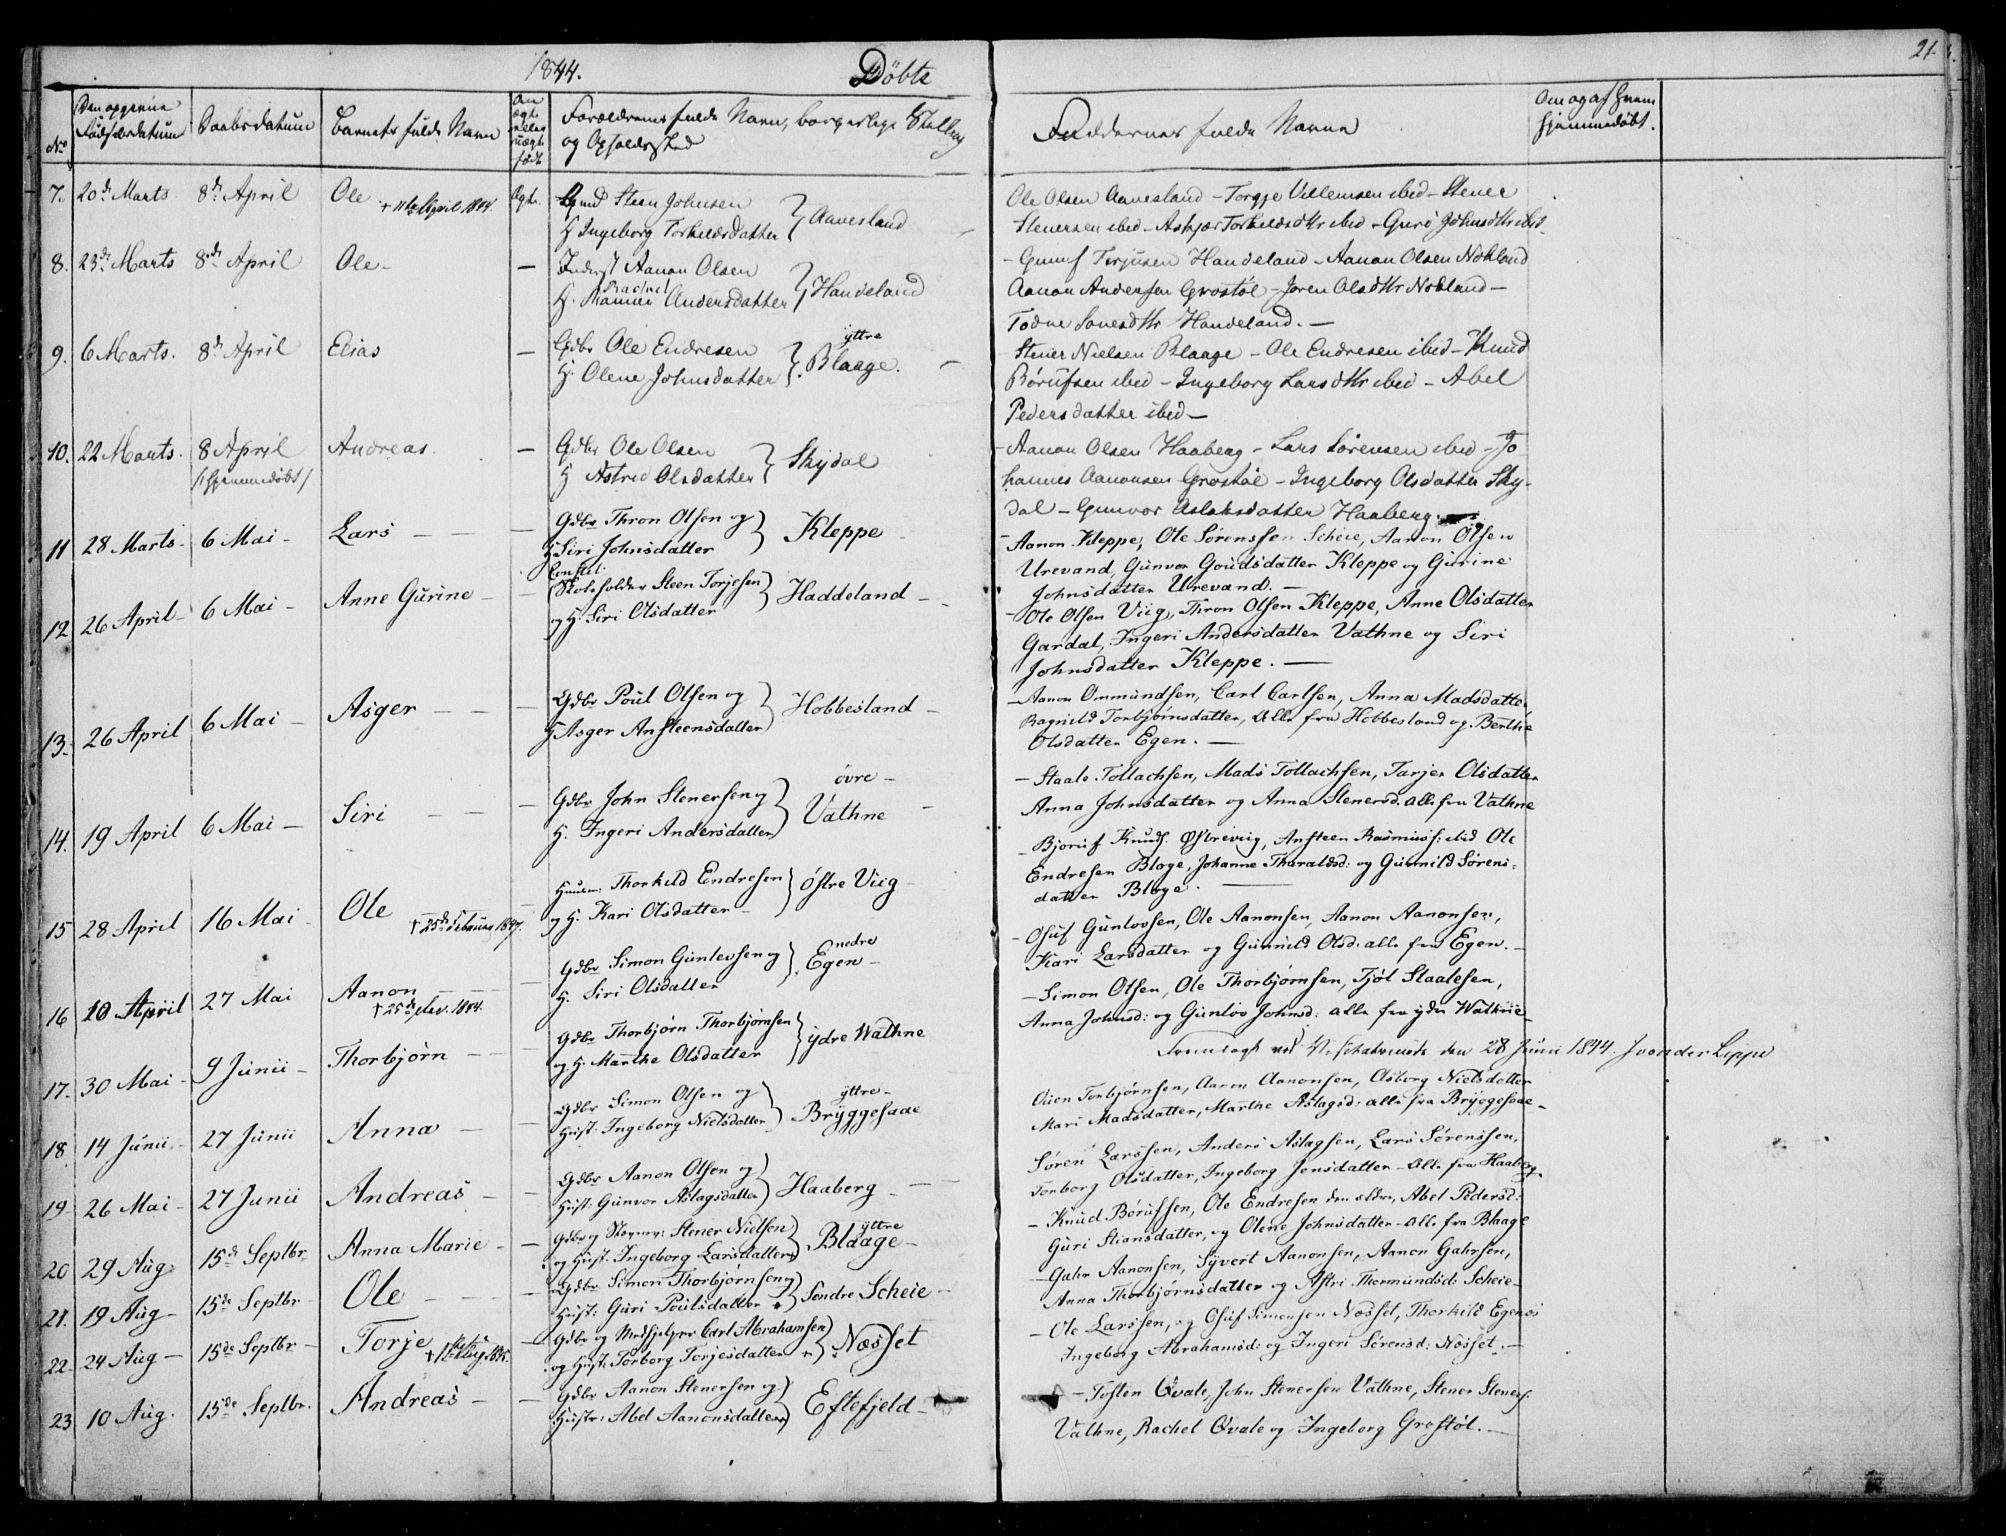 1844. Döbte
21.
No
Den opgivne Fødselsdatum
Daabsdatum
Barnets fulde Navn
Om ægte eller uægte født
Forældrenes fulde Navn, borgerlige Stilling
og Opholdssted
Faddernes fulde Navne
Om og af hvem
hjemmedøbt.
7. 20de Marts 8de April Ole + 11te April 1844. Ægte. Gmd Steen Johnsen
H Ingeborg Torkildsdatter } Aavesland
Ole Olsen Aavesland - Torgje Villemsen ibid - Stener
Stenersen ibid - Askjær Torkildsdtr ibid - Guro Johnsdtr ibid.
8. 23de Marts 8de April Ole - — Inderst Aanon Olsen
H. Rachel Andersdatter } Handeland
- Gunuf Terjusen Handeland - Aanon Olsen Nökland
Aanon Andersen Grostöl - Joren Olsdtr Nökland -
Todne Jonesdtr Handeland. —
9. 6 Marts. 8de April Elias — Gdbr Ole Endresen
H. Olene Johnsdatter } yttre Blaage. —
- Stener Nielsen Blaage - Ole Endresen ibid - Knud
Börufsen ibid - Ingeborg Larsdtr ibid - Abel
Pedersdatter ibid —
10. 22 Marts. 8 April Andreas. — Gdbr Ole Olsen
/:hjemmedöbt/
H Astrid Olsdatter } Skydal
- Aanon Olsen Haaberg - Lars Sörensen ibid - Jo
hannes Aanonsen Grostöl - Ingeborg Olsdatter Sky-
dal - Gunvor Aslaksdatter Haaberg.
11 28 Marts - 6 Mai - Lars — — Gdbr Thron Olsen og
H Siri Johnsdatter } Kleppe -
- Aanon Kleppe, Ole Sörenssen Scheie, Aanon Olsen
Urevand, Gunvor Goudsdatter Kleppe og Gurine
Johnsdatter Urevand. —
12 26 April - 6 Mai - Anne Gurine - — Constit:
Skoleholder Steen Torjesen
og H. Siri Olsdatter } Haddeland - -
- Ole Olsen Viig, Thron Olsen Kleppe, Anne Olsdatter
Gardal, Ingeri Andersdatter Vathne og Siri
Johnsdatter Kleppe. —
13. 26 April 6 Mai - Asger — — Gdbr Poul Olsen og
H Asger Ansteensdatter } Hobbesland -
- Aanon Ommundsen, Carl Carlsen, Anna Madsdatter
Ragnild Torbjörnsdatter, alle fra Hobbesland og Berthe
Olsdatter Egen. —
14. 19 April 6 Mai - Siri — — Gdbr John Stenersen og
H. Ingeri Andersdatter } övre - Vathne -
- Staale Tollachsen, Mads Tollachsen, Tarjer Olsdatter
Anna Johnsdatter og Anna Stenersd. alle fra Vathne
15 28 April 16 Mai - Ole † 25de Februar 1847. Huusm: Thorkild Endresen
og H. Kari Olsdatter - } Östre Viig -
- Bjoruf Knuds. Östreviig, Ansteen Rasmusf: ibid Ole
Endresen Blage, Johanne Tharaldsd: og Gunnild Sörens-
datter Blage. —
16 10 April 27 Mai Aanon † 25de Nov. 1844. Gdbr Simon Gunlevsen og
H. Siri Olsdatter } nedre Egen -
- Osuf Gunlovsen, Ole Aanonsen, Aanon Aanonsen,
Kari Larsdatter og Gunnild Olsd: alle fra Egen. -
17. 30 Mai - 9 Junii - Thorbjörn - - Gdbr Thorbjörn Thorbjörnsen
og H. Marthe Olsdatter } ydre Wathne
- Simon Olsen, Ole Thorbjörnsen, Tjöl Staalesen,
Anna Johnsd: og Gunlov Johnsd: alle fra ydre Wathne -
Fremlagt ved Visitatsen den 28 Juni 1844. J von der Lippe
18. 14 Junii - 27 Junii Anna - - Gdbr Simon Olsen og
Hust: Ingeborg Nielsdatter } yttre - Bryggesaae
Ouen Torbjörnsen, Aaron Aanonsen, Asborg Nielsdatter
Mari Madsdatter, Marthe Aslagsd: alle fra Bryggesaae -
19 26 Mai - 27 Junii Andreas - - Gdbr Aanon Olsen og
Hust: Gunvor Aslagsdatter } Haaberg - —
Sören Larssen, Anders Aslagsen, Lars Sörenssen,
Torborg Olsdatter, Ingeborg Jensdatter - alle fra Haaberg.
20 29 Aug: 15de Septbr. Anna Marie - - Gdbr og Skoem: Stener Nielsen
og Hust: Ingeborg Larsdatter } yttre Blaage -
- Knud Börufssen, Ole Endresen den eldre, Abel Pedersd:
Guri Stiansdatter, og Olene Johnsdatter - alle fra Blaage
21. 19 Aug - 15de Septbr - Ole - - - Gdbr Simon Thorbjörnsen og
Hust: Guri Poulsdatter } Söndre Scheie -
- Gahr Aanonsen, Syvert Aanonsen, Aanon Gahrsen,
Anna Thorbjörnsdatter og Astri Thormundsd: Scheie -
22. 24 Aug - 15de Septbr - Torje + 12te Aug 1845. Gdbr og Medhjelper Carl Abrahamsen
og Hust: Torborg Torjesdatter } Næsset
- Ole Larssen, og Osuf Simonsen Næsset, Thorkild Egenes
Ingeborg Abrahamsd: og Ingeri Sörensd: Næsset. -
23 10 Aug. 15de Septbr. Andreas - - Gdbr Aanon Stenersen og
Hustr: Abel Aanonsdatter } Eftefjeld -
- Tosten Qvale, John Stenersen Vathne, Stener Steners.
Vathne, Rachel Qvale og Ingeborg Grostöl. -